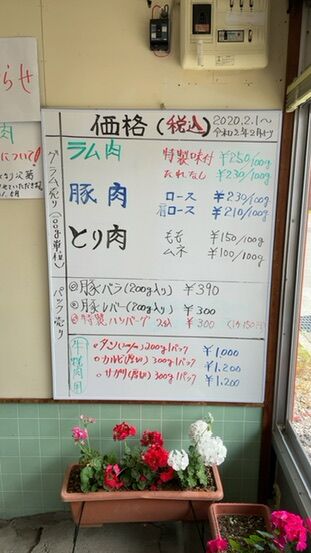 らせ
肉
について!
価格(税込)
2020.2.1〜
令和2年2月より
グラム売り(100g単位)
ラム肉 特製味付 ¥250/100g
たれなし ¥230/100g
豚肉 ロース ¥230/100g
肩ロース ¥210/100g
とり肉 もも ¥150/100g
ムネ ¥100/100g
パック売り
◎豚バラ(200g入り) ¥390
◎豚レバー(200g入り) ¥300
◎特製ハンバーグ 2個 ¥300
牛焼肉用
○タン 200g1パック ¥1,000
○カルビ(厚切) 300g1パック ¥1,200
○サガリ(厚切) 300g1パック ¥1,200